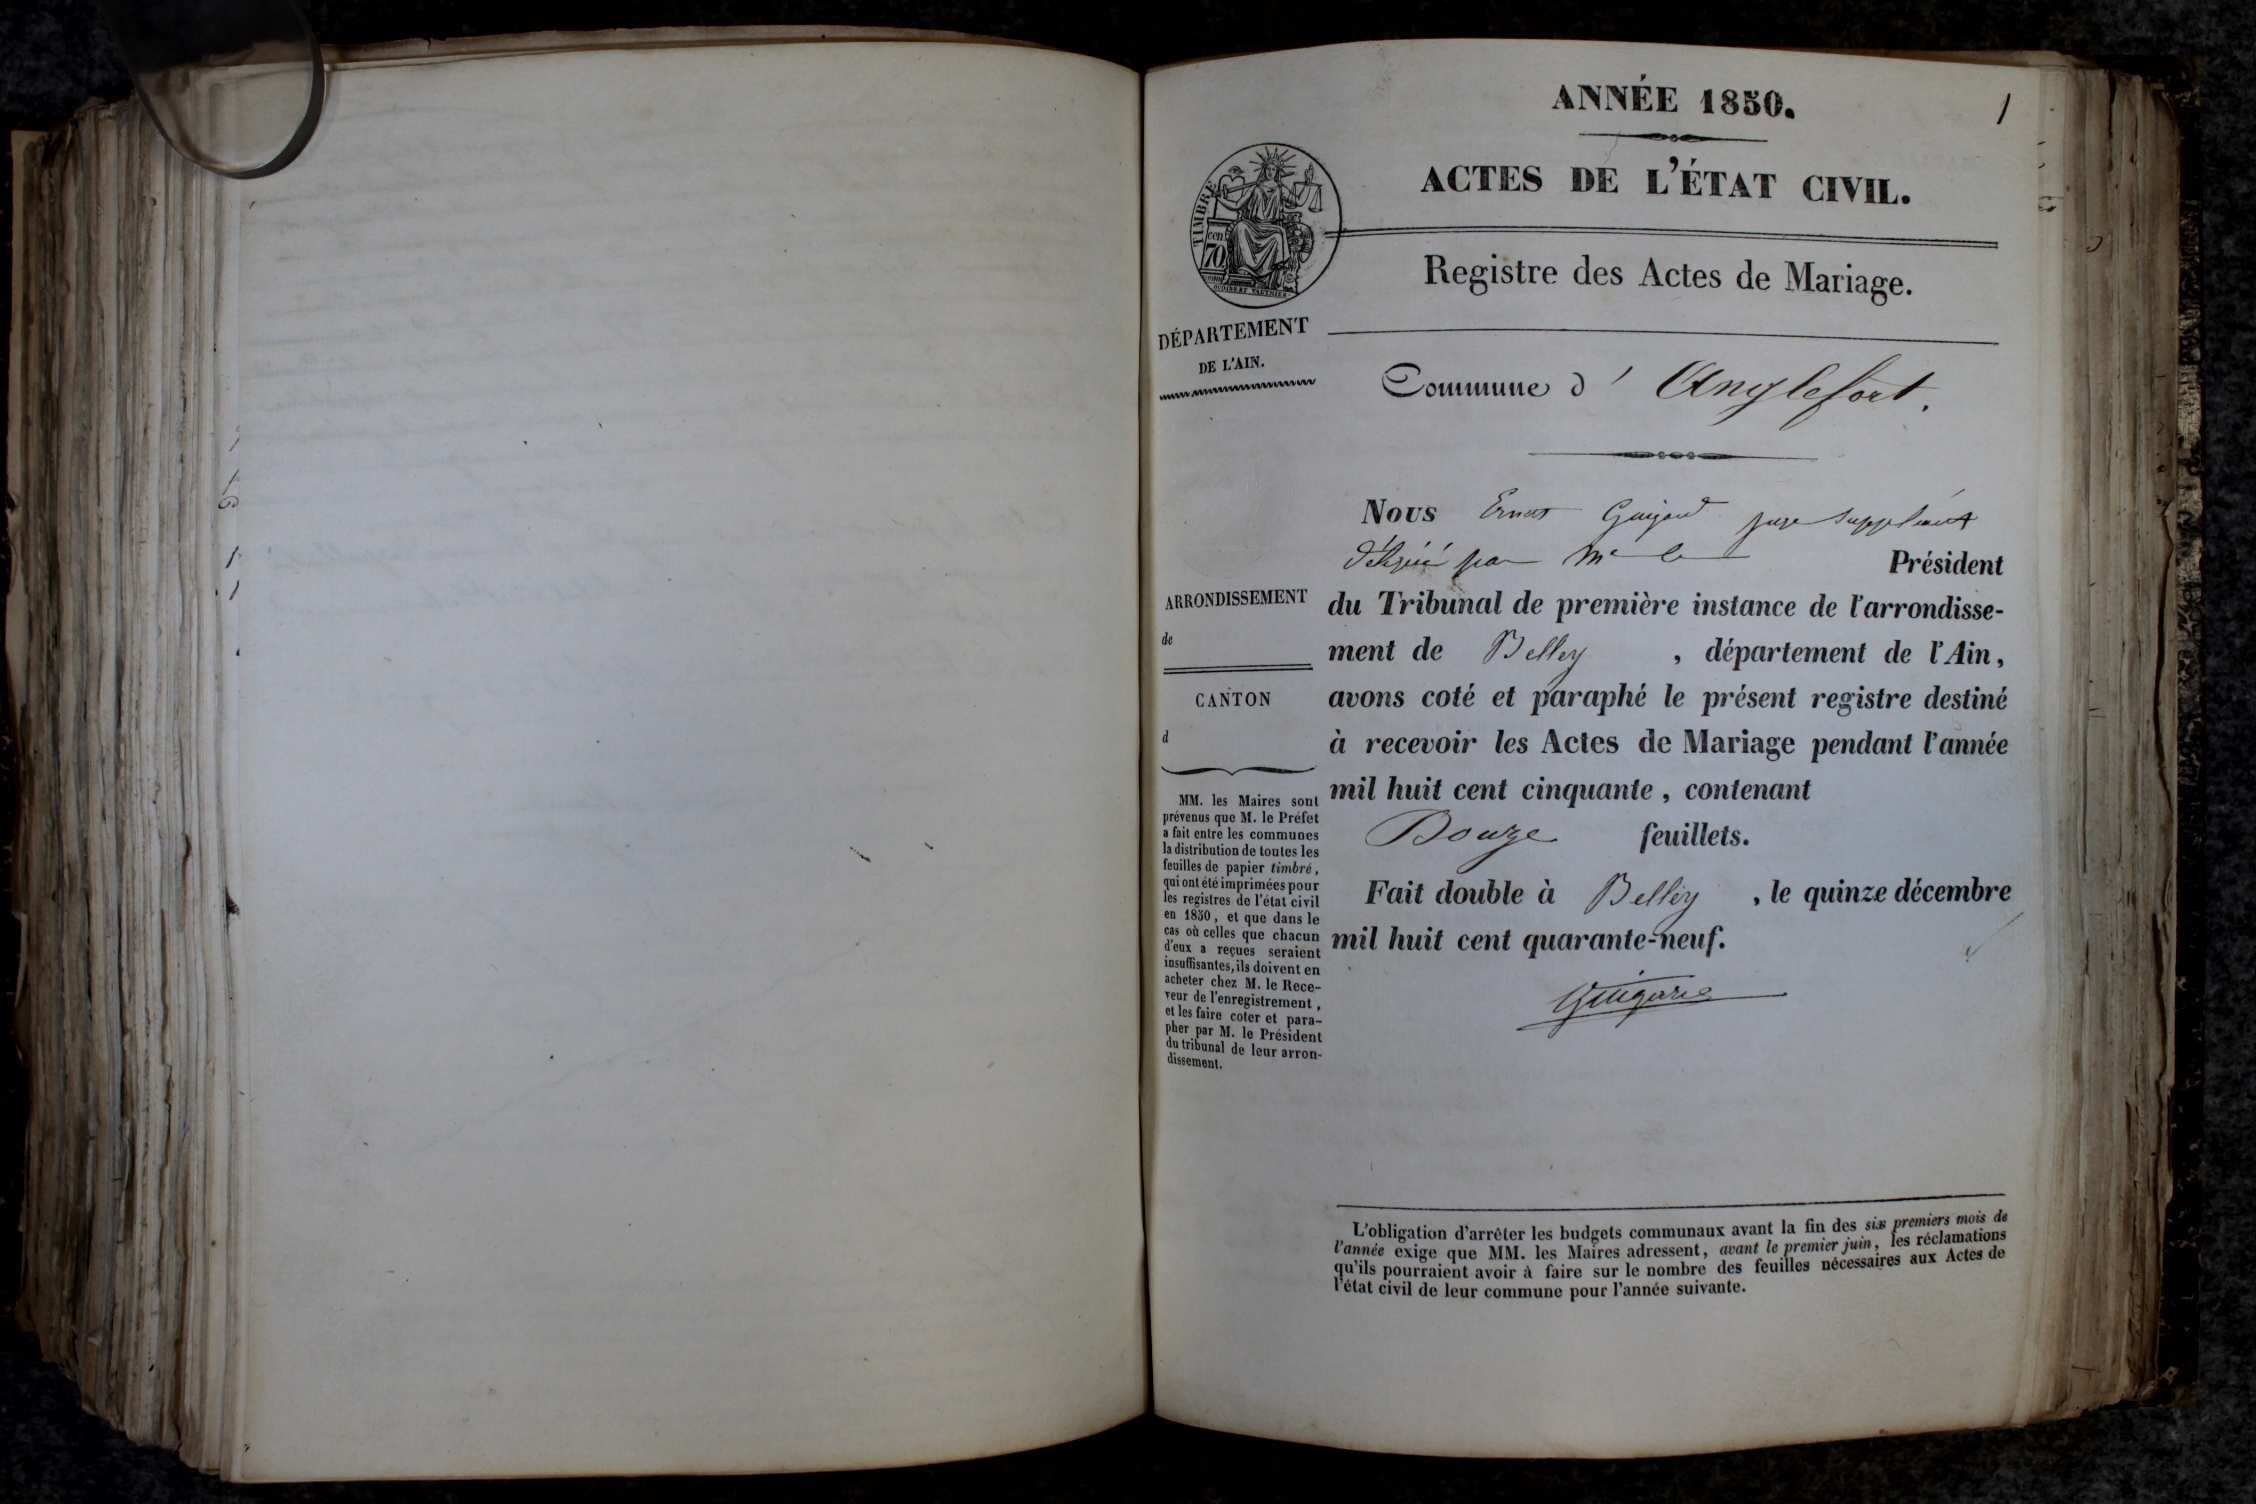 ANNÉE 1850.
1
ACTES DE L'ÉTAT CIVIL.
TIMBRE
cen
70
Registre des Actes de Mariage.
DÉPARTEMENT
DE L'AIN.
Commune d' Anglefort.
Nous Ernest juge suppléant
délégué par Mr le Président
ARRONDISSEMENT
de
du Tribunal de première instance de l'arrondisse-
ment de Belley , département de l'Ain,
CANTON
d
avons coté et paraphé le présent registre destiné
à recevoir les Actes de Mariage pendant l'année
mil huit cent cinquante, contenant
Douze feuillets.
Fait double à Belley , le quinze décembre
mil huit cent quarante-neuf.
MM. les Maires sont
prévenus que M. le Préfet
a fait entre les communes
la distribution de toutes les
feuilles de papier timbré,
qui ont été imprimées pour
les registres de l'état civil
en 1850, et que dans le
cas où celles que chacun
d'eux a reçues seraient
insuffisantes, ils doivent en
acheter chez M. le Rece-
veur de l'enregistrement,
et les faire coter et para-
pher par M. le Président
du tribunal de leur arron-
dissement.
L'obligation d'arrêter les budgets communaux avant la fin des six premiers mois de
l'année exige que MM. les Maires adressent, avant le premier juin, les réclamations
qu'ils pourraient avoir à faire sur le nombre des feuilles nécessaires aux Actes de
l'état civil de leur commune pour l'année suivante.